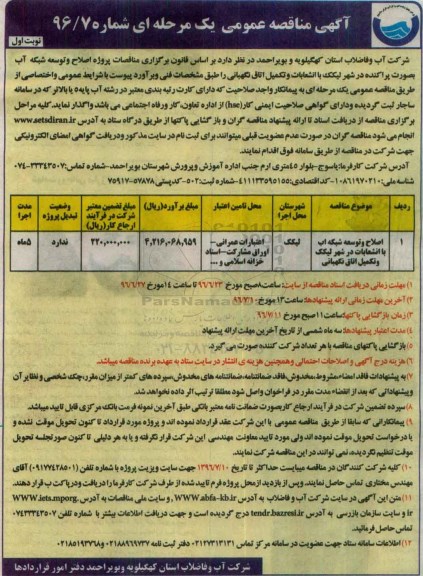 آگهی مناقصه عمومی یک مرحله ای شماره ۹۶/۷
نوبت اول
شرکت آب وفاضلاب استان کهگیلویه و بویراحمد در نظر دارد بر اساس قانون برگزاری مناقصات پروژه اصلاح وتوسعه شبکه آب
بصورت پراکنده در شهر لیکک با انشعابات وتکمیل اتاق نگهبانی را طبق مشخصات فنی وبرآورد پیوست با شرایط عمومی واختصاصی از
طریق مناقصه عمومی یک مرحله ای به پیمانکار واجد صلاحیت که دارای کارت رتبه بندی معتبر در رشته آب پایه ۵ یا بالاتر که در سامانه
ساجار ثبت گردیده ودارای گواهی صلاحیت ایمنی کار(hse) از اداره تعاون،کار ورفاه اجتماعی می باشد،واگذار نماید.کلیه مراحل
برگزاری مناقصه از دریافت اسناد تا ارائه پیشنهاد مناقصه گران و باز گشایی پاکتها از طریق درگاه ستاد به آدرس www.setadiran.ir
انجام می شود مناقصه گران در صورت عدم عضویت قبلی میتوانند برای ثبت نام در سایت مذکور ودریافت گواهی امضای الکترونیکی
جهت شرکت در مناقصه از طریق سامانه فوق اقدام نمایند.
آدرس شرکت کارفرما:یاسوج-بلوار ۴۵متری ارم جنب اداره آموزش وپرورش شهرستان بویراحمد-شماره تماس:۰۷۴-۳۳۳۴۳۵۰۷
شناسه ملی: ۱۰۸۶۱۹۷۰۲۱۰-کداقتصادی:۴۱۱۱۳۳۵۹۵۱۵۵-شماره ثبت:۵۰۲-کدپستی:۵۷۸۷۸-۷۵۹۱۷
ردیف
موضوع مناقصه
شهرستان محل اجرا
محل تامین اعتبار
مبلغ برآورد(ریال)
مبلغ تضمین معتبر شرکت در فرآیند ارجاع کار(ریال)
وضعیت تبدیل پروژه
مدت اجرا
۱
اصلاح وتوسعه شبکه آب با انشعابات در شهر لیکک وتکمیل اتاق نگهبانی
لیکک
اعتبارات عمرانی-اوراق مشارکت-اسناد خزانه اسلامی و ...
۴,۲۱۶,۰۶۸,۹۵۹
۲۲۰,۰۰۰,۰۰۰
ندارد
۵ماه
۱) مهلت زمانی دریافت اسناد مناقصه از سایت: ساعت۸صبح مورخ ۹۶/۶/۲۳ تا ساعت ۱۴مورخ ۹۶/۶/۲۷
۲) آخرین مهلت زمانی ارائه پیشنهادها: ساعت۱۳ مورخ ۹۶/۷/۱۰
۳) زمان بازگشایی پاکتها: ساعت ۱۱ صبح مورخ ۹۶/۷/۱۱
۴) مدت اعتبار پیشنهادها: سه ماه شمسی از تاریخ آخرین مهلت ارائه پیشنهاد
۵) بازگشایی پاکتهای مناقصه با هر تعداد شرکت کننده صورت می گیرد.
۶) هزینه درج آگهی و اصلاحات احتمالی وهمچنین هزینه ی انتشار در سایت ستاد به عهده برنده مناقصه میباشد.
۷) به پیشنهادات فاقد امضاء،مشروط،مخدوش،فاقد ضمانتنامه،ضمانتنامه های مخدوش،سپرده های کمتر از میزان مقرر،چک شخصی و نظایر آن
وپیشنهاداتی که بعد از انقضاء مدت مقرر در فراخوان واصل شود مطلقا ترتیب اثر داده نخواهد شد.
۸) سپرده تضمین شرکت در فرآیند ارجاع کاربصورت ضمانت نامه معتبر بانکی طبق آخرین نمونه فرمت بانک مرکزی قابل تایید میباشد.
۹) پیمانکارانی که سابقا از طریق مناقصه عمومی با این شرکت عقد قرارداد نموده اند و پروژه مورد قرارداد تا کنون تحویل موقت نشده و
یا درخواست تحویل موقت نموده اند ولی مورد تایید معاونت مهندسی این شرکت قرار نگرفته و یا به هر دلیلی تا کنون صورتجلسه تحویل
موقت تنظیم نگردیده، نمی توانند در این مناقصه شرکت نمایند.
۱۰) کلیه شرکت کنندگان در مناقصه میبایست حداکثر تا تاریخ ۱۳۹۶/۷/۱۰ جهت سایت ویزیت پروژه با شماره تلفن (۰۹۱۷۷۴۲۸۵۰۱) آقای
مهندس مختاری تماس حاصل نمایند. وپس از بازدید ازمحل پروژه فرم تایید شده از طرف شرکت کارفرما را دریافت ودرپاکت ب قرار دهند.
۱۱) متن این آگهی در سایت شرکت آب و فاضلاب به آدرس WWW.abfa-kb.ir و سایت ملی مناقصات به آدرس WWW.iets.mporg.
ir و سایت سازمان بازرسی به آدرس tendr.bazresi.ir درج گردیده است و جهت دریافت اطلاعات بیشتر با شماره تلفن ۰۷۴۳۳۳۴۳۵۰۷
تماس حاصل فرمائید.
۱۲) اطلاعات سامانه ستاد جهت عضویت در سامانه مرکز تماس ۰۲۱۲۷۳۱۳۱۳۱ دفتر ثبت نامه ۰۲۱۸۸۹۶۹۷۳۷ و ۰۲۱۸۵۱۹۳۷۶۸
شرکت آب وفاضلاب استان کهگیلویه وبویراحمد دفتر امور قراردادها